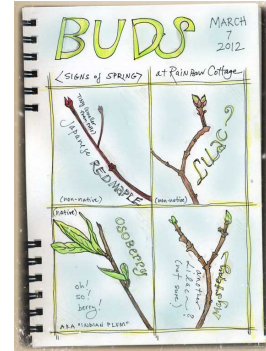 BUDS
MARCH
7
2012
<SIGNS of SPRING>
at RAINBOW Cottage
Japanese
RED MAPLE
(non-native)
LILAC~
(non-native)
(native)
OSOBERRY
oh!
so!
berry!
AKA "INDIAN PLUM"
another
Lilac~?
(not sure)